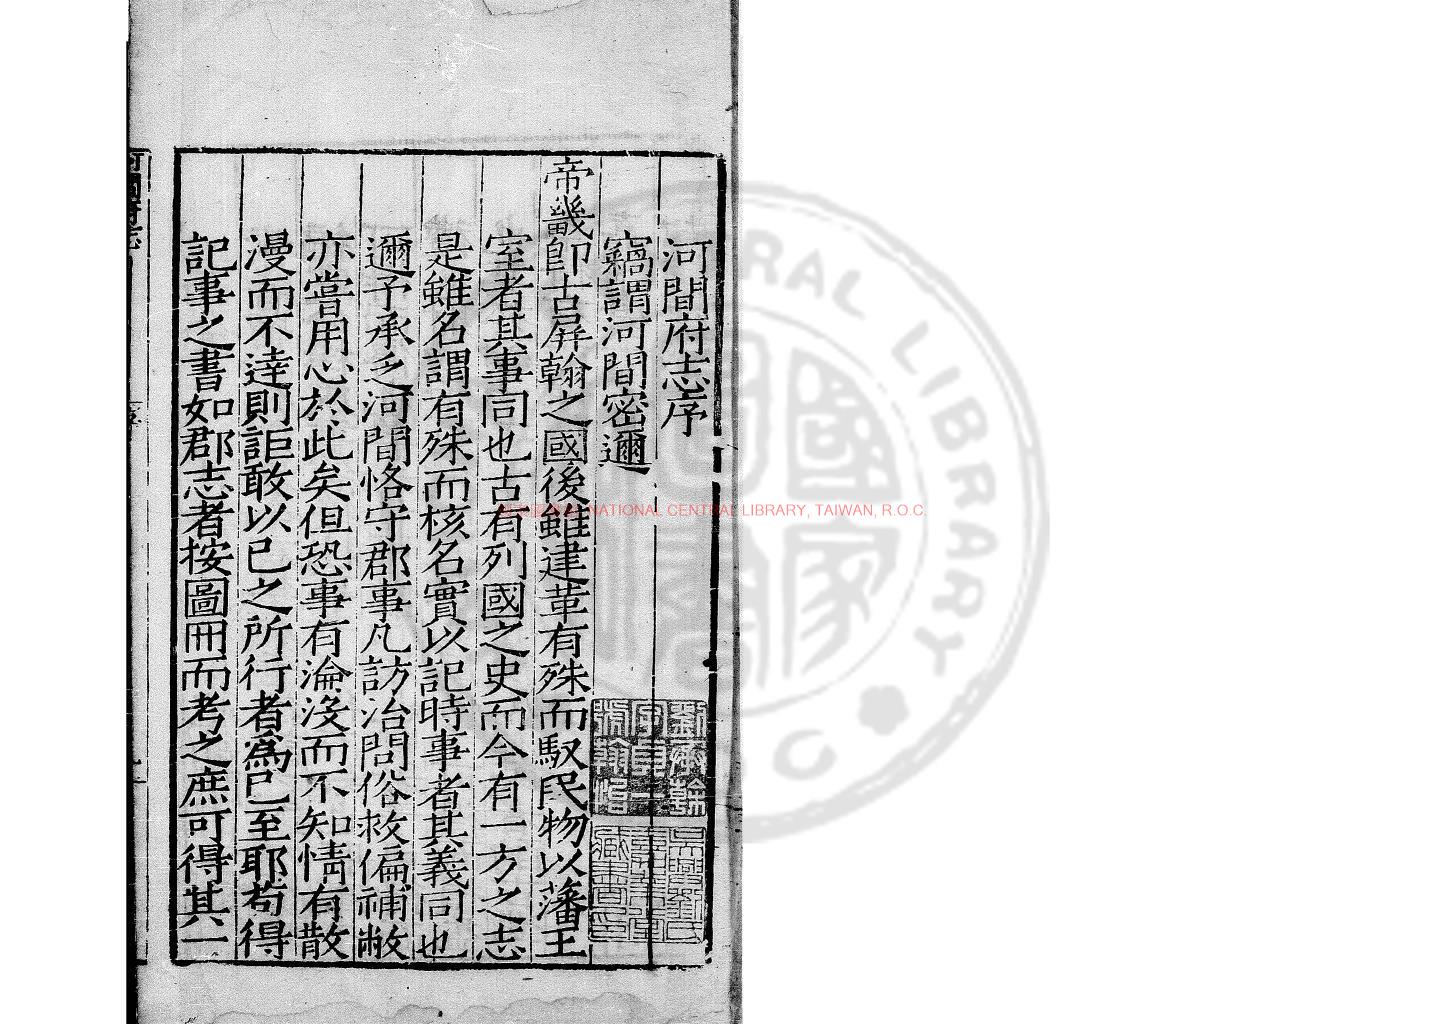 河間府志序
竊謂河間密邇
帝畿卽古屏翰之國後雖建革有殊而馭民物以藩王
室者其事同也古有列國之史而今有一方之志
是雖名謂有殊而核名實以記時事者其義同也
邇予承乏河間恪守郡事凡訪治問俗救偏補敝
亦嘗用心於此矣但恐事有淪沒而不知情有散
漫而不達則詎敢以已之所行者爲已至耶苟得
記事之書如郡志者按圖冊而考之庶可得其一
劉承幹
字貞一
號翰怡
吳興劉氏
嘉業堂
藏書印
河間府志
序
NATIONAL CENTRAL LIBRARY, TAIWAN, R.O.C.
RAL LIBRARY
國家